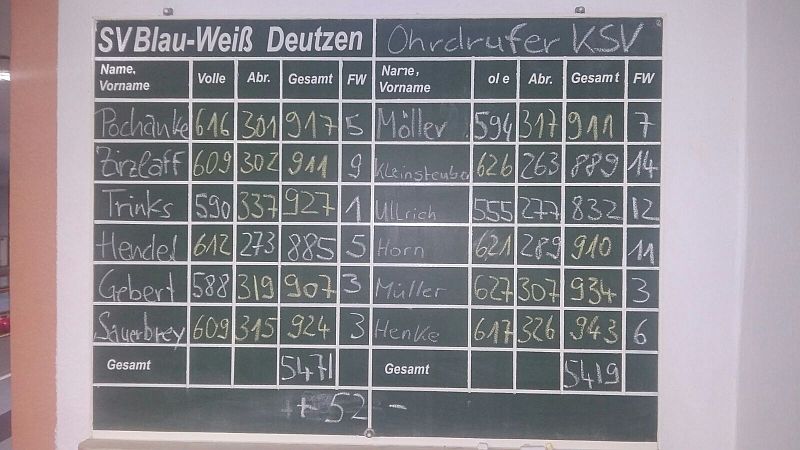 SV Blau-Weiß Deutzen Ohrdrufer KSV
Name, Vorname Volle Abr. Gesamt FW Name, Vorname ol e Abr. Gesamt FW
Pochanke 616 301 917 5 Möller 594 317 911 7
Zirzlaff 609 302 911 9 Kleinsteuber 626 263 889 14
Trinks 590 337 927 1 Ullrich 555 277 832 12
Hendel 612 273 885 5 Horn 621 289 910 11
Gebert 588 319 907 3 Müller 627 307 934 3
Sauerbrey 609 315 924 3 Henke 617 326 943 6
Gesamt 5471 Gesamt 5419
+ 52 -